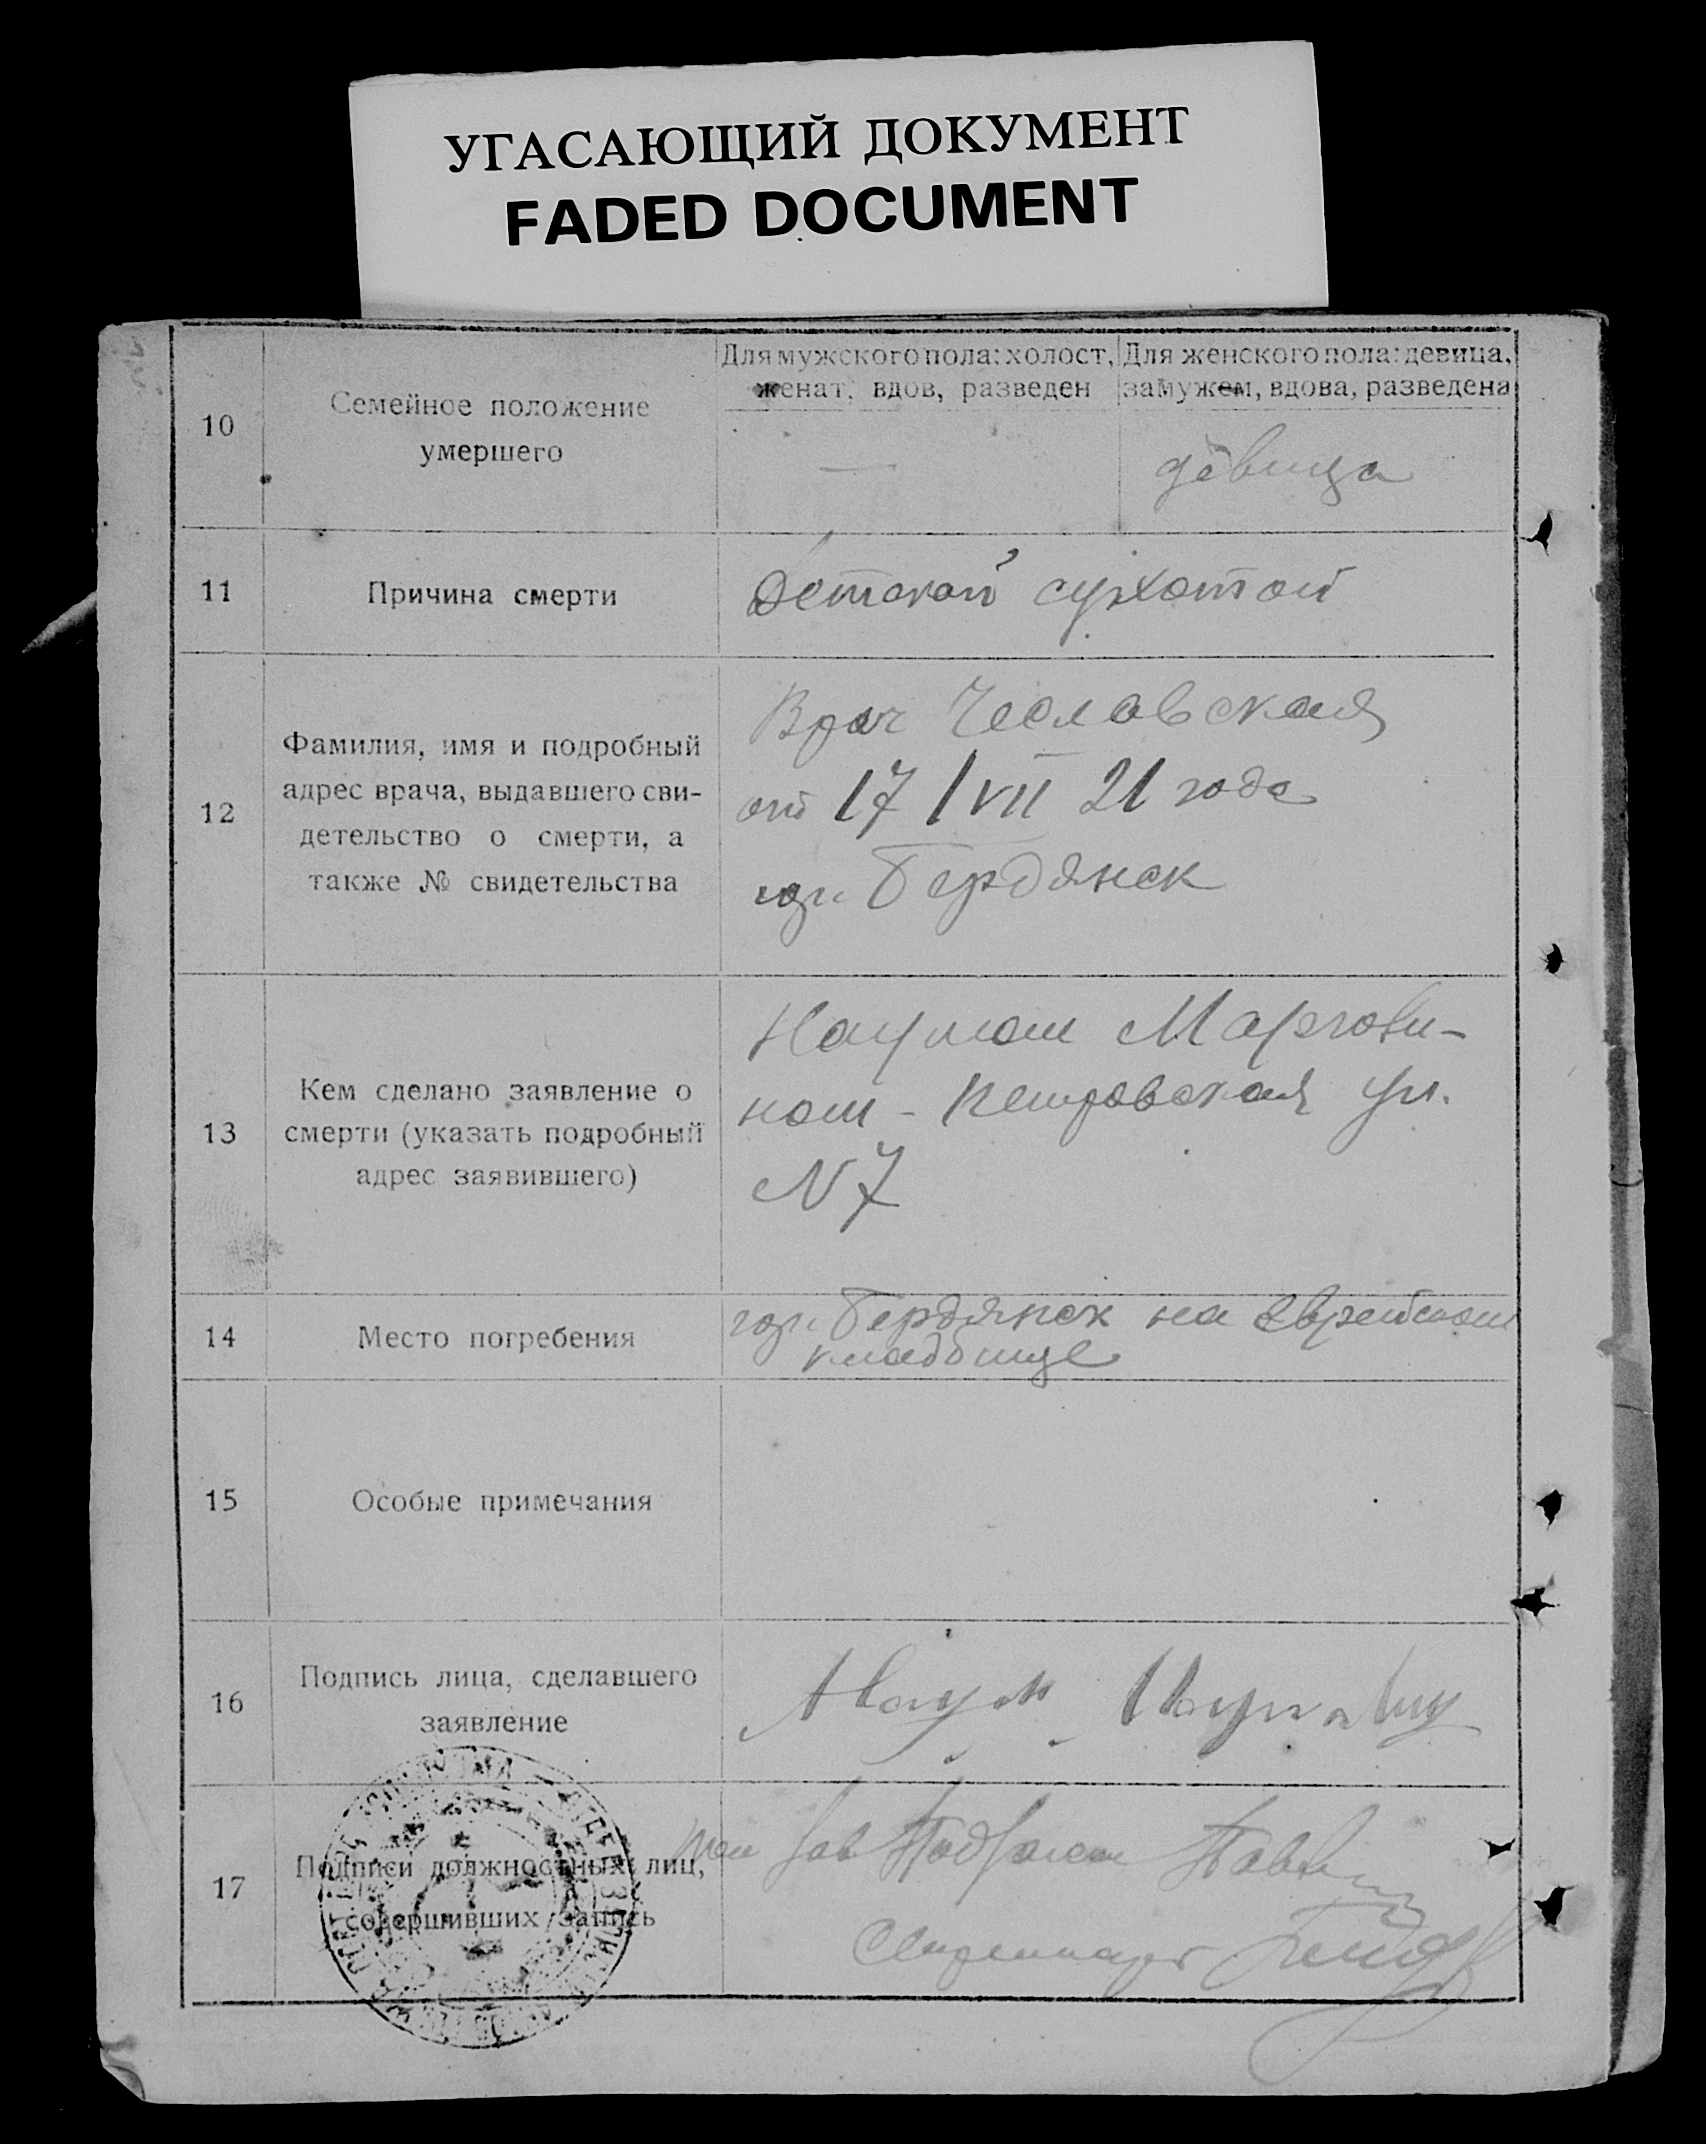 УГАСАЮЩИЙ ДОКУМЕНТ
FADED DOCUMENT
10
Семейное положение
умершего
Для мужского пола: холост,
женат, вдов, разведен
Для женского пола: девица,
замужем, вдова, разведена
—
девица
11
Причина смерти
Детской сухотой
12
Фамилия, имя и подробный
адрес врача, выдавшего сви-
детельство о смерти, а
также № свидетельства
Врач Чеславская
от 17/VII 21 года
гор. Бердянск
13
Кем сделано заявление о
смерти (указать подробный
адрес заявившего)
Наумом
ном - Петровская ул.
N 7
14
Место погребения
гор. Бердянск на еврейском
кладбище
15
Особые примечания
16
Подпись лица, сделавшего
заявление
Наум
17
Подписи должностных лиц,
совершивших запись
Зав